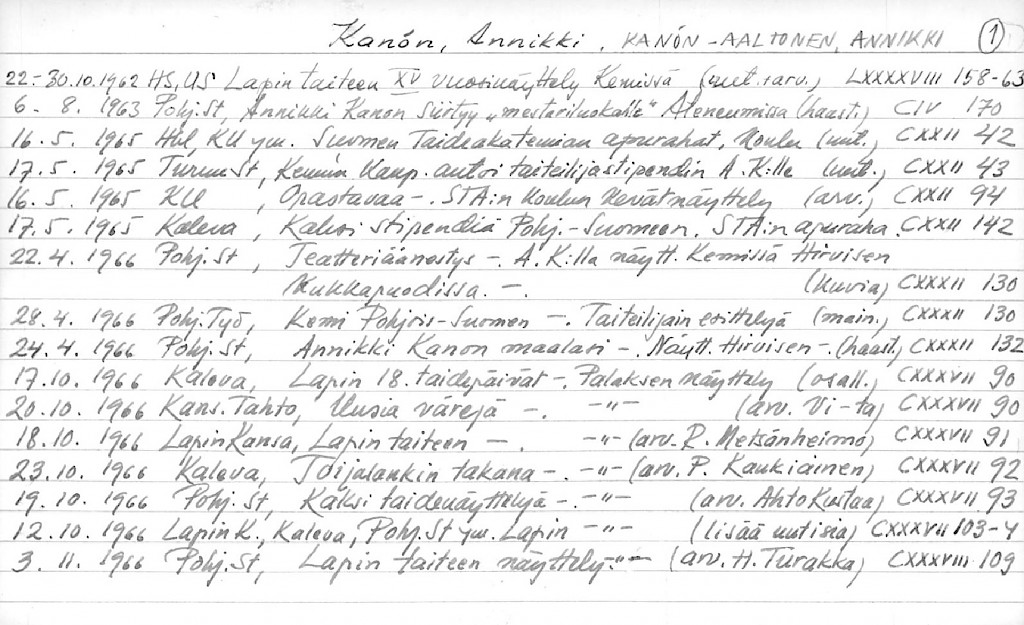 Kanón, Annikki, KANÓN-AALTONEN, ANNIKKI 1
22.-30.10.1962 HS, US Lapin taiteen XV vuosinäyttely Kemissä (uut. + arv.) LXXXXVIII 158-63
6. 8. 1963 Pohj.St, Annikki Kanon siirtyy "mestariluokalle" Ateneumissa (haast.) CIV 170
16.5. 1965 Hbl, KU ym. Suomen Taideakatemian apurahat, Koulu (uut.) CXXII 42
17.5. 1965 Turun St, Kemin Kaup. antoi taiteilijastipendin A.K:lle (uut.) CXXII 43
16.5. 1965 KU, Opastavaa -. STA:n koulun kevätnäyttely (arv.) CXXII 94
17.5. 1965 Kaleva, Kaksi stipendiä Pohj.-Suomeen. STA:n apuraha. CXXII 142
22.4. 1966 Pohj.St, Teatteriäänestys -. A.K:lla näytt. Kemissä Hirvisen
Kukkapuodissa. -. (kuvia) CXXXII 130
28.4. 1966 Pohj.Työ, Kemi Pohjois-Suomen -. Taiteilijain esittelyä (main.) CXXXII 130
24.4. 1966 Pohj.St, Annikki Kanon maalari -. Näytt. Hirvisen -. (haast.) CXXXII 132
17.10. 1966 Kaleva, Lapin 18. taidepäivät -. Palaksen näyttely (osall.) CXXXVII 90
20.10. 1966 Kans.Tahto, Uusia värejä -. -"- (arv. Vi-ta) CXXXVII 90
18.10. 1966 Lapin Kansa, Lapin taiteen -. -"- (arv. R. Metsänheimo) CXXXVII 91
23.10. 1966 Kaleva, Toijalankin takana -. -"- (arv. P. Kaukiainen) CXXXVII 92
19.10. 1966 Pohj.St, Kaksi taidenäyttelyä -. -"- (arv. Ahto Kustaa) CXXXVII 93
12.10. 1966 Lapin K., Kaleva, Pohj.St ym. Lapin -"- (lisää uutisia) CXXXVII 103-4
3. 11. 1966 Pohj.St, Lapin taiteen näyttely -"- (arv. H. Turakka) CXXXVIII 109